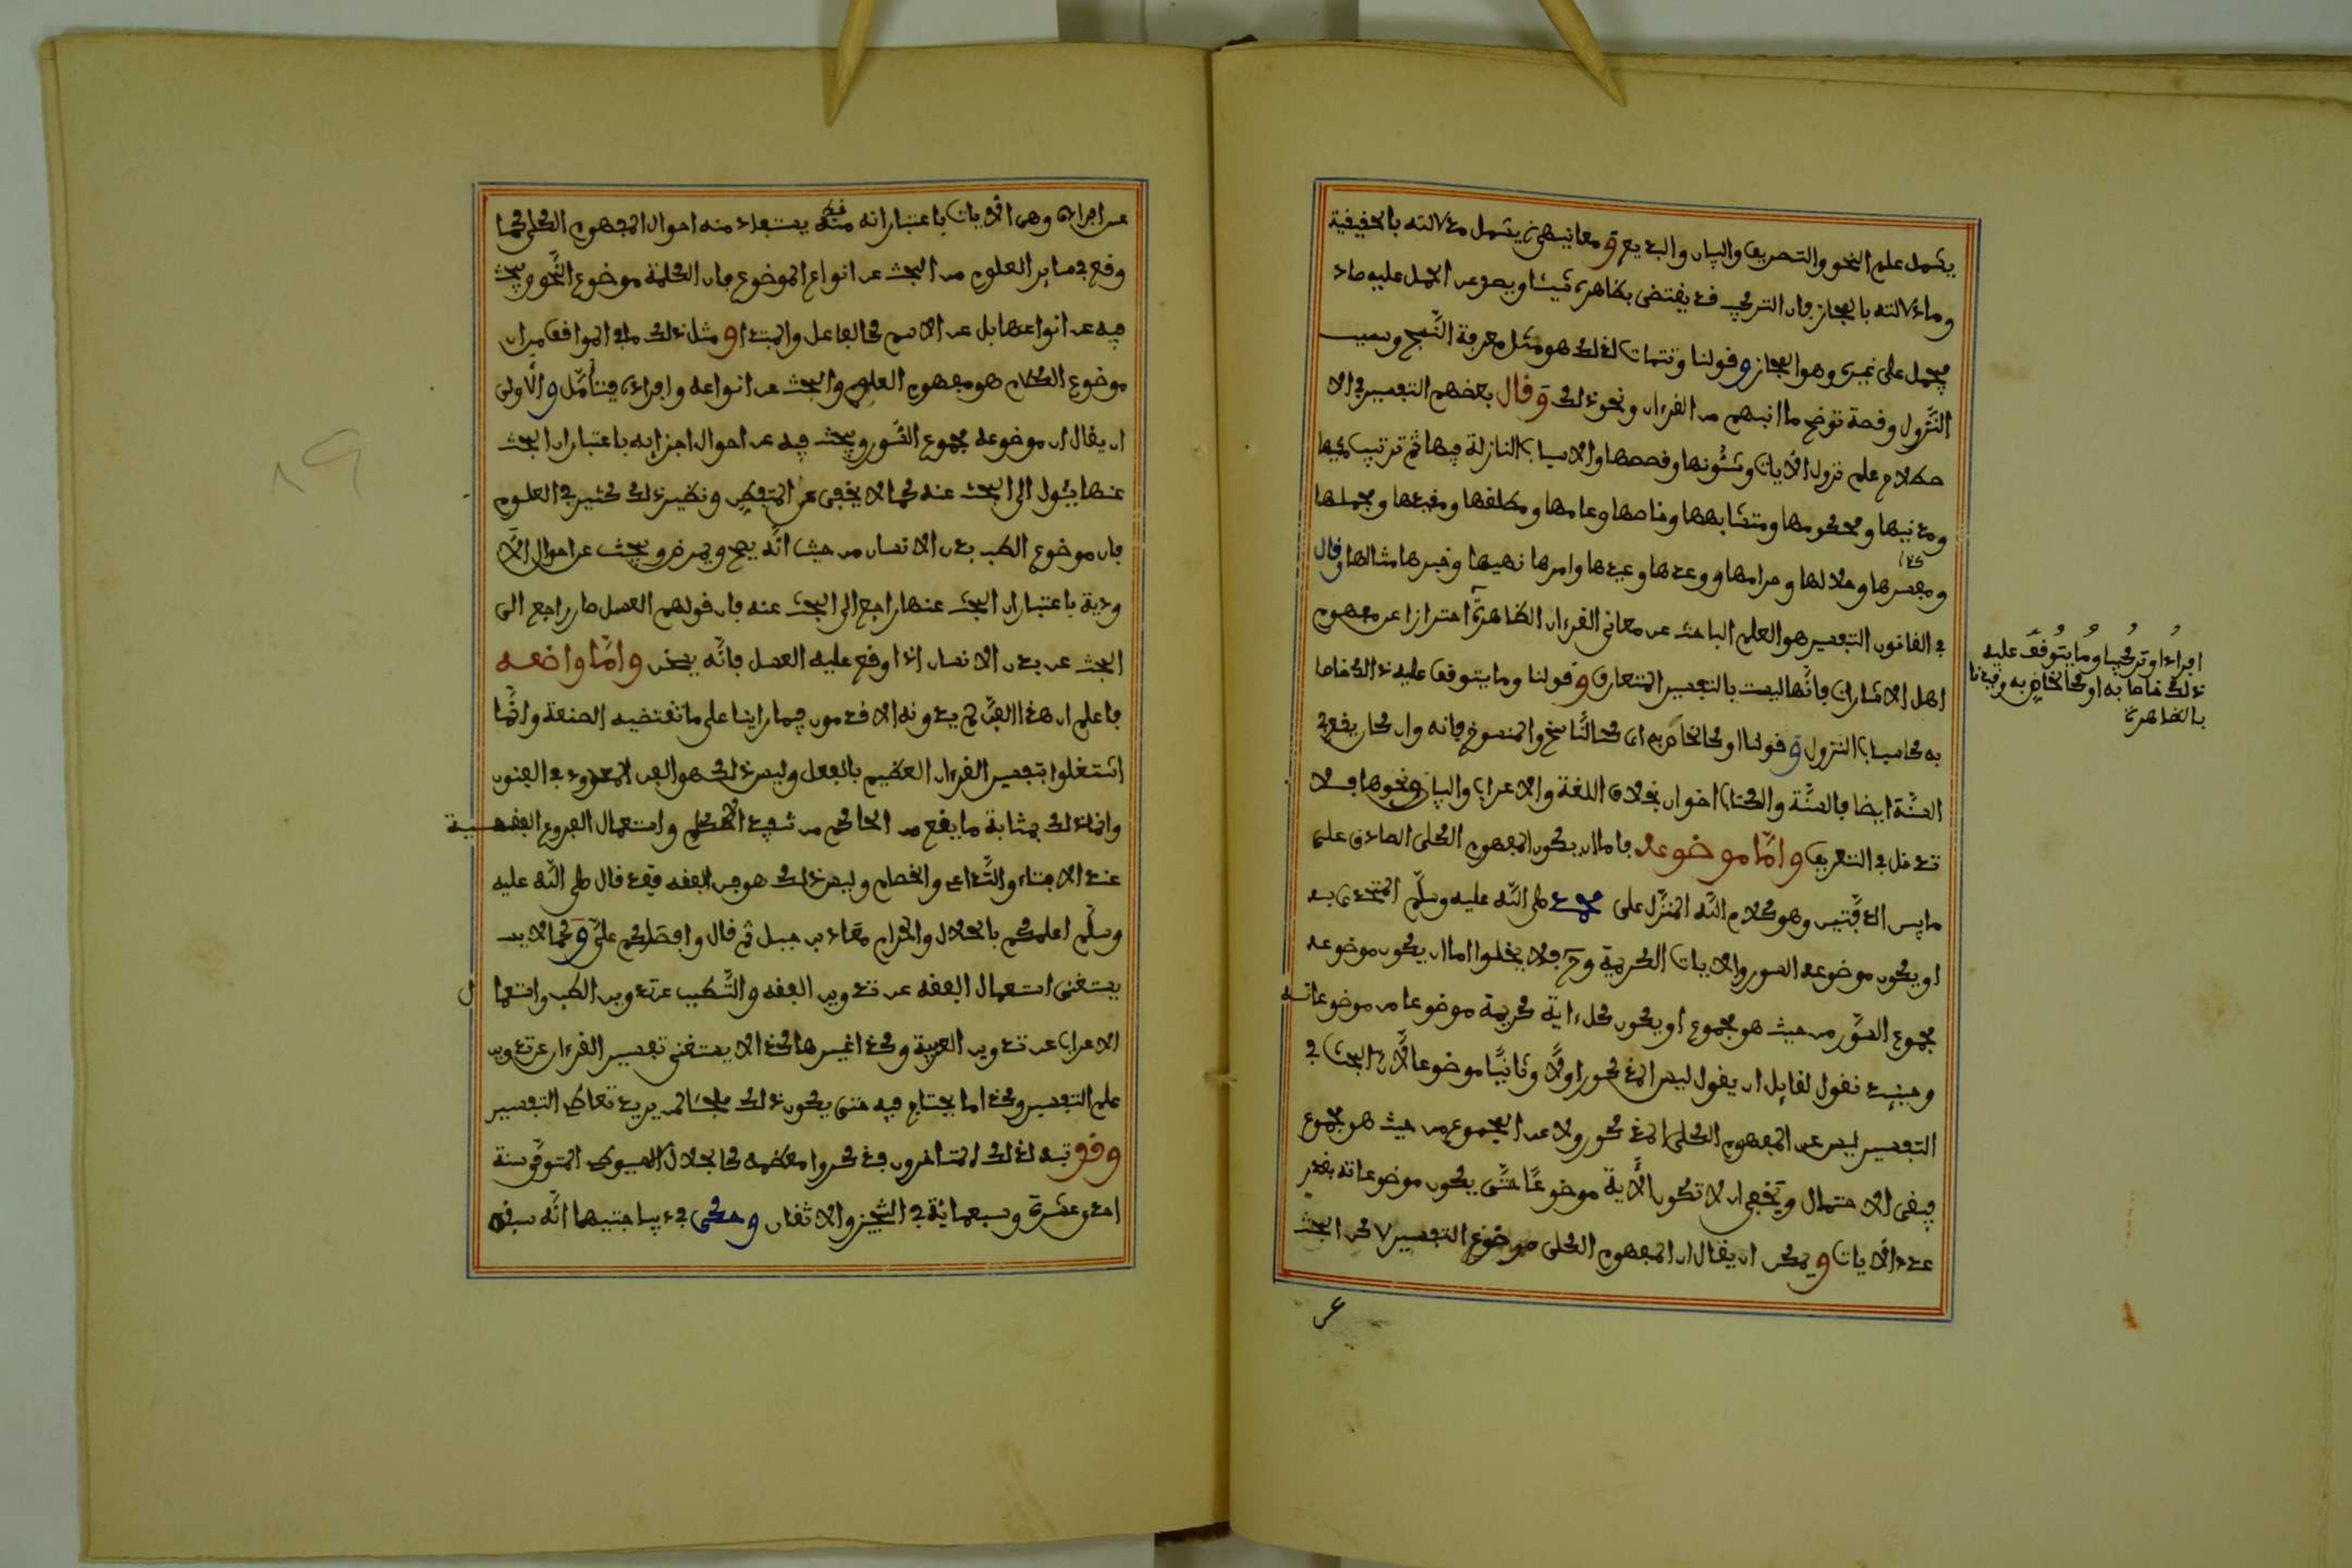 يشمل علم النحو والتصريف والبيان والبديع و معانيها يشمل ما دلالته بالحقيقة
وما دلالته بالمجاز فان التركيب قد يقتضى بظاهره شيئا ويصد عن الحمل عليه صاد
فيحمل على غيره وهو المجاز و قولنا وتتمات لذلك هو مثل معرفة النسخ وسبب
النزول وقصة توضح ما انبهم من القرءان ونحو ذلك و قال بعضهم التفسير في الا
صطلاح علم نزول الايات وشئونها وقصصها والاسباب النازلة فيها ثم ترتيب مكيها
ومدنيها ومحكمها ومتشابهها وخاصها وعامها ومطلقها ومقيدها ومجملها
ومفسرها وحلالها وحرامها ووعدها وعيدها وامرها نهيها وخبرها مثالها وقال
في القانون التفسير هو العلم الباحث عن معاني القرءان الظاهرة احترازا عن مفهوم
اهل الاشارات فانها ليست بالتفسير المتعارف و قولنا وما يتوقف عليه ذالك خاصا
به كاسباب النزول و قولنا او كالخاص به اى كالناسخ والمنسوخ فانه وان كان يقع في
السنة ايضا فالسنة والكتاب اخوان بخلاف اللغة والاعراب والبيان ونحوها فلا
تدخل في التعريف واما موضوعه فاما ان يكون المفهوم الكلى الصادق على
ما بين الدفتين وهو كلام الله المنزل على محمد صلى الله عليه وسلم المتحدى به
او يكون موضوعه السور والايات الكريمة وح فلا يخلوا اما ان يكون موضوعه
مجموع السور من حيث هو مجموع او يكون كل ءاية كريمة موضوعا من موضوعاته
وحينئد نقول لقايل ان يقول ليس المذكور اولا وثانيا موضوعا لان البحث في
التفسير ليس عن المفهوم الكلى المذكور ولا عن المجموع من حيث هو مجموع
فيبقى الاحتمال ويخفى ان لا تكون الاية موضوعا حتى يكون موضوعاته بقدر
عدد الايات و يمكن ان يقال ان المفهوم الكلى موضوع التفسير لاكن البحث
عن
افراد او تركيبا وما يتوقف عليه
ذلك خاصا به او كالخاص به وقيدنا
بالظاهرة
عن افراده وهى الايات باعتبار انه منه يستفاد منه احوال المفهوم الكلى كما
وقع في ساير العلوم من البحث عن انواع الموضوع فان الكلمة موضوع النحو ويبحث
فيه عن انواعها بل عن الاسم كالفاعل والمبتدا و مثل ذلك ما في المواقف من ان
موضوع الكلام هو مفهوم المعلوم والبحث عن انواعه وافراده فيتأمل و الاولى
ان يقال ان موضوعه مجموع السور ويبحث فيه عن احوال اجزايه باعتبار ان البحث
عنها يئول الى البحث عنه كما لا يخفى عن المتفكر ونظير ذلك كثير في العلوم
فان موضوع الطب بدن الانسان من حيث انه يصح ويمرض ويبحث عن احوال الا
ودية باعتبار ان البحث عنها راجع الى البحث عنه فان قولهم العسل حار راجع الى
البحث عن بدن الانسان اذا وقع عليه العسل فانه يسخن واما واضعه
فاعلم ان هذا الفن لم يدونه الاقدمون فيما راينا على ما تقتضيه الصنعة وانما
اشتغلوا بتفسير القرءان العظيم بالفعل وليس ذلك هو الفن المعدود في الفنون
وانما ذلك بمثابة ما يقع من الحاكم من تنفيد الحكم واستعمال الفروع الفقهية
عند الافتاء والتداعى والخصام وليس ذلك هو فن الفقه فقد قال صلى الله عليه
وسلم اعلمكم بالحلال والحرام معاذ بن جبل ثم قال واقضاكم على و كما لا يـ
يستغنى استعمال الفقه عن تدوين الفقه والتطبيب عن تدوين الطب واستعمال
الاعراب عن تدوين العربية وكذا غيرها كذا لا يستغنى تفسير القرءان عن تدوين
علم التفسير وكذا ما يحتاج فيه حتى يكون ذلك ملجئا لمن يريد تعاطى التفسير
وقد تنبه لذلك المتاخرون فذكروا معظمه كالجلال السيوطى المتوفى سنة
احدى عشرة وسبعمائة في التحبير والاتقان وحكى في ديباجتيهما انه سبقه